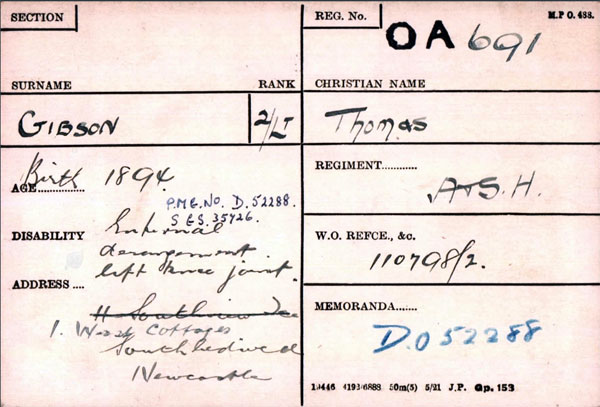 SECTION
REG. No.
M.P O. 488.
OA 691
SURNAME
RANK
CHRISTIAN NAME
GIBSON
2/LT
Thomas
AGE............ Birth 1894
P.M.G. No. D. 52288.
S.E.S. 35726.
DISABILITY Internal
derangement
left knee joint.
ADDRESS....
1. West Cottages
Newcastle
REGIMENT............
A+S.H.
W.O. REFCE., &c.
110798/2.
MEMORANDA......
D.O 52288
50m(5) 5/21 J.P. Gp. 153